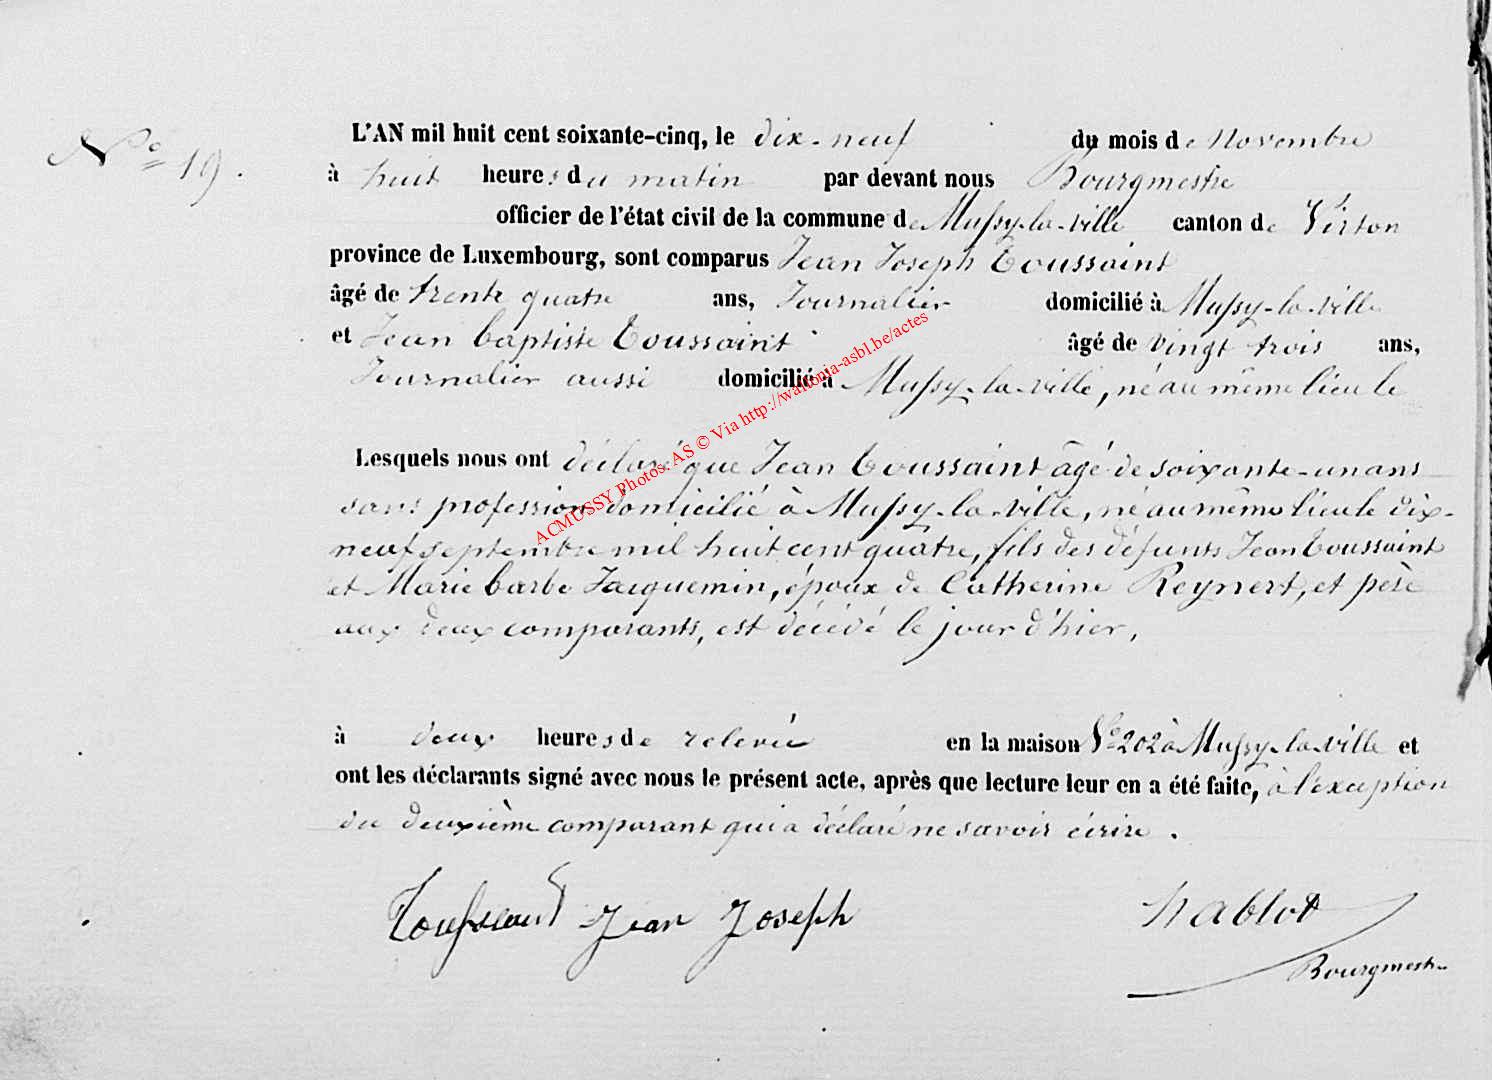 N° 19.
L'AN mil huit cent soixante-cinq, le dix-neuf du mois de Novembre
à huit heures du matin par devant nous Bourgmestre
officier de l'état civil de la commune de Mussy-la-ville canton de Virton
province de Luxembourg, sont comparus Jean Joseph Toussaint
âgé de trente quatre ans, Journalier domicilié à Mussy-la-ville
et Jean baptiste Toussaint âgé de vingt trois ans,
Journalier aussi domicilié à Mussy-la-ville, né au même lieu le
Lesquels nous ont déclaré que Jean Toussaint âgé de soixante-un ans
sans profession domicilié à Mussy-la-ville, né au même lieu le dix-
neuf septembre mil huit cent quatre, fils des défunts Jean Toussaint
et Marie barbe Jacquemin, époux de Catherine Reynert, et père
aux deux comparants, est décédé le jour d'hier,
à deux heures de relevée en la maison N° 202 à Mussy-la-ville et
ont les déclarants signé avec nous le présent acte, après que lecture leur en a été faite, à l'exception
du deuxième comparant qui a déclaré ne savoir écrire.
Toussaint Jean Joseph
hablot
Bourgmestre
ACMUSSY Photos: AS © Via http://wallonia-asbl.be/actes